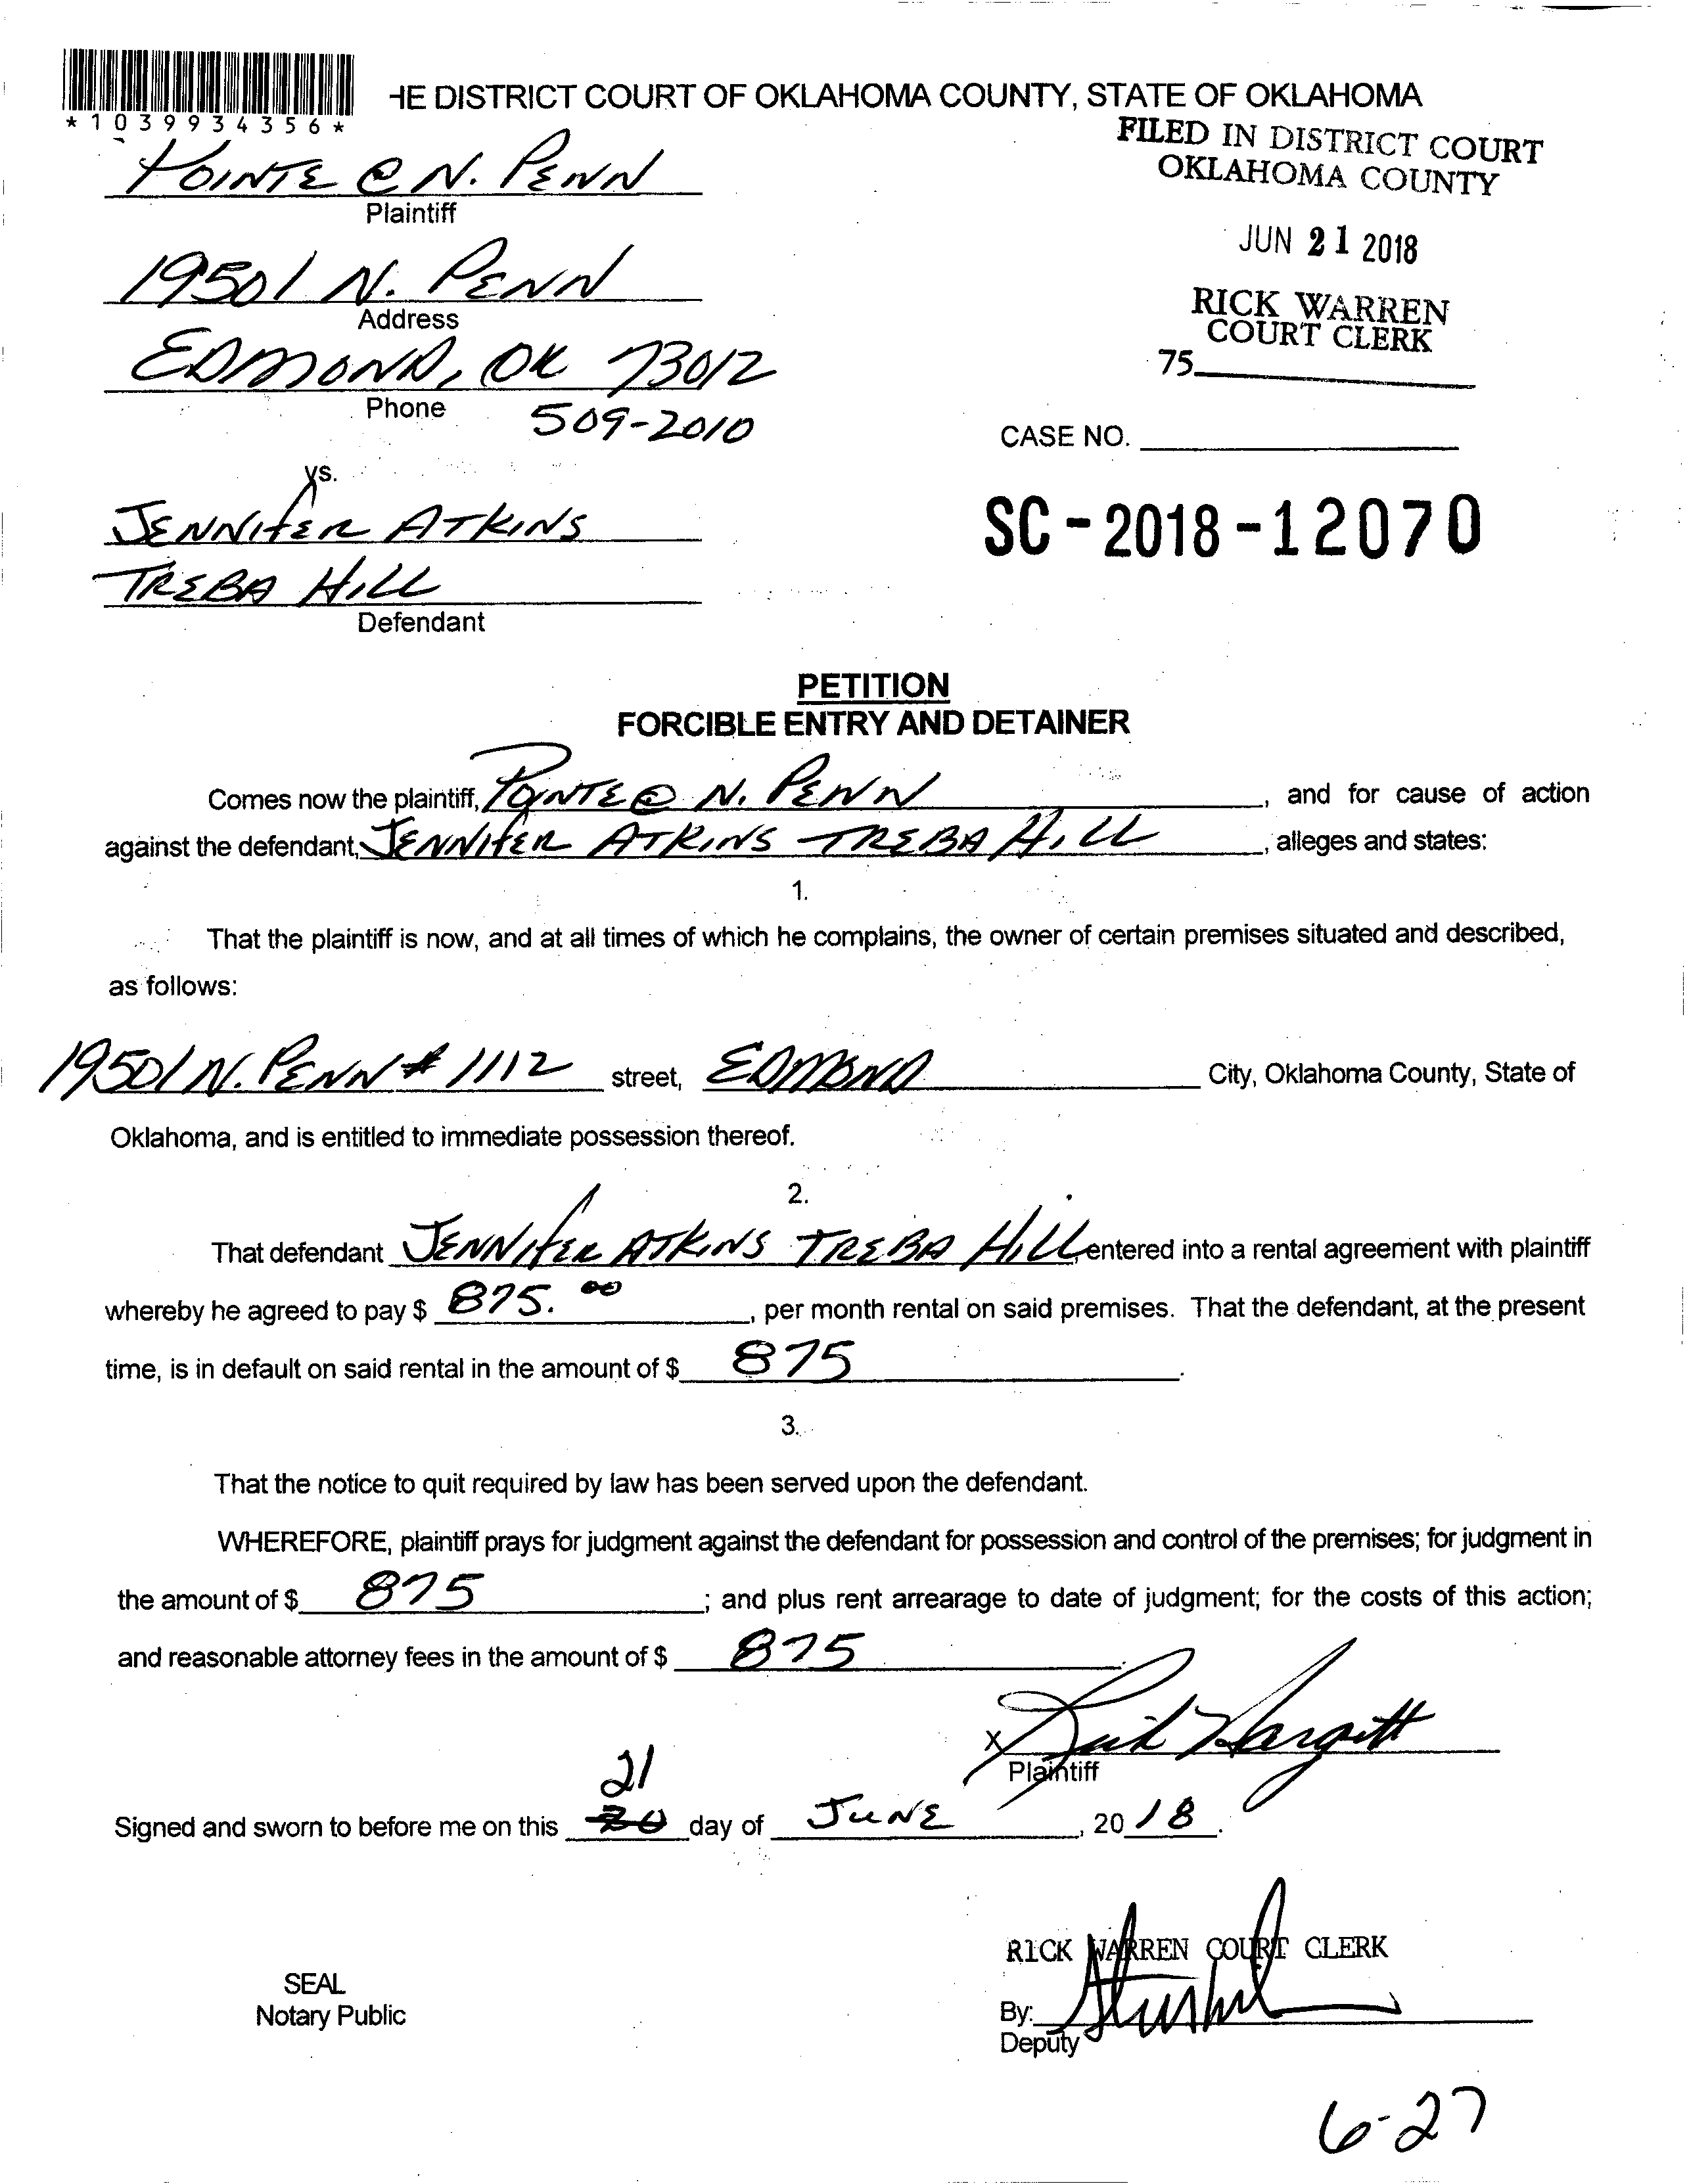 *1039934356*
HE DISTRICT COURT OF OKLAHOMA COUNTY, STATE OF OKLAHOMA
FILED IN DISTRICT COURT
OKLAHOMA COUNTY
JUN 21 2018
RICK WARREN
COURT CLERK
75
POINTE @ N. PENN
Plaintiff
19501 N. PENN
Address
EDMOND, OK 73012
Phone 509-2010
CASE NO.
SC-2018-12070
vs.
JENNIFER ATKINS
TREBA HILL
Defendant
PETITION
FORCIBLE ENTRY AND DETAINER
Comes now the plaintiff, POINTE @ N. PENN, and for cause of action
against the defendant, JENNIFER ATKINS TREBA HILL, alleges and states:
1.
That the plaintiff is now, and at all times of which he complains, the owner of certain premises situated and described,
as follows:
19501 N. PENN # 1112 street, EDMOND City, Oklahoma County, State of
Oklahoma, and is entitled to immediate possession thereof.
2.
That defendant JENNIFER ATKINS TREBA HILL entered into a rental agreement with plaintiff
whereby he agreed to pay $ 875.00, per month rental on said premises. That the defendant, at the present
time, is in default on said rental in the amount of $ 875.
3.
That the notice to quit required by law has been served upon the defendant.
WHEREFORE, plaintiff prays for judgment against the defendant for possession and control of the premises; for judgment in
the amount of $ 875; and plus rent arrearage to date of judgment; for the costs of this action;
and reasonable attorney fees in the amount of $ 875.
X
Hargett
Plaintiff
21
Signed and sworn to before me on this 20 day of JUNE, 2018.
RICK WARREN COURT CLERK
SEAL
Notary Public
By:
Deputy
6-27